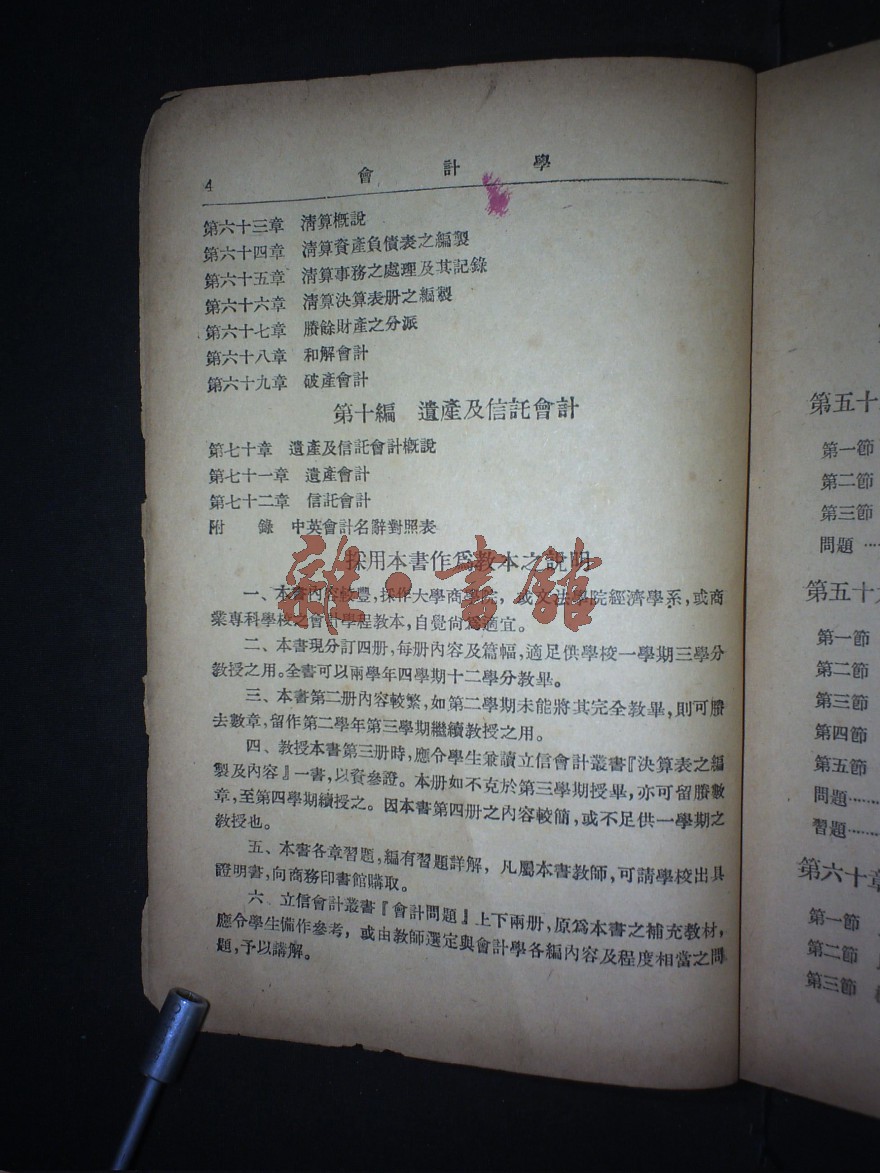 4 會計學
第六十三章 清算概說
第六十四章 清算資產負債表之編製
第六十五章 清算事務之處理及其記錄
第六十六章 清算決算表册之編製
第六十七章 賸餘財產之分派
第六十八章 和解會計
第六十九章 破產會計
第十編 遺產及信託會計
第七十章 遺產及信託會計概說
第七十一章 遺產會計
第七十二章 信託會計
附錄 中英會計名辭對照表
採用本書作爲教本之說明
雜·書館
一、本書內容較豐,採作大學商學院,或文法學院經濟學系,或商
業專科學校之會計學程教本,自覺尙爲適宜。
二、本書現分訂四册,每册內容及篇幅,適足供學校一學期三學分
教授之用。全書可以兩學年四學期十二學分教畢。
三、本書第二册內容較繁,如第二學期未能將其完全教畢,則可賸
去數章,留作第二學年第三學期繼續教授之用。
四、教授本書第三册時,應令學生兼讀立信會計叢書『決算表之編
製及內容』一書,以資參證。本册如不克於第三學期授畢,亦可留賸數
章,至第四學期續授之。因本書第四册之內容較簡,或不足供一學期之
教授也。
五、本書各章習題,編有習題詳解,凡屬本書教師,可請學校出具
證明書,向商務印書館購取。
六、立信會計叢書『會計問題』上下兩册,原爲本書之補充教材,
應令學生備作參考,或由教師選定與會計學各編內容及程度相當之問
題,予以講解。
第五十
第一節
第二節
第三節
問題
第五十
第一節
第二節
第三節
第四節
第五節
問題
習題
第六十章
第一節
第二節
第三節